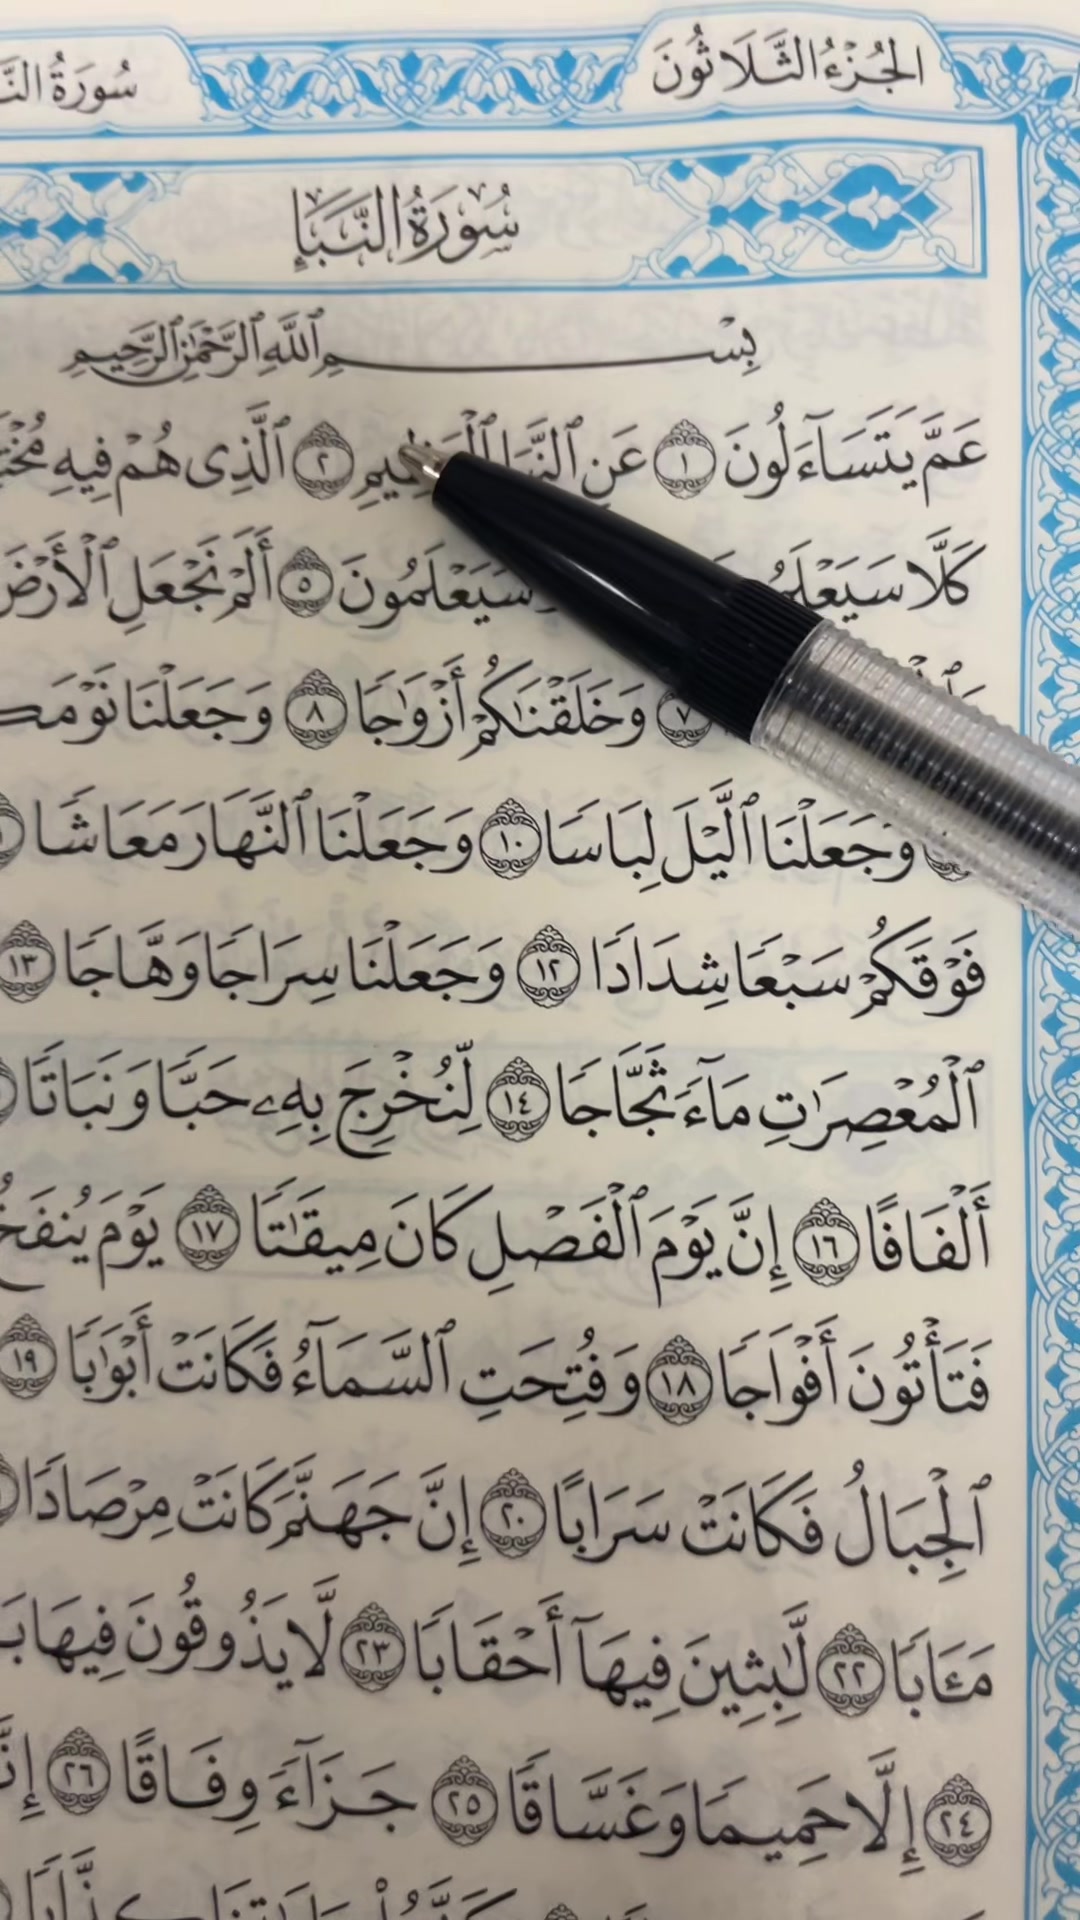 الجُزْءُ الثَّلَاثُونَ سُورَةُ
سُورَةُ النَّبَإِ
بِسْمِ ٱللَّهِ ٱلرَّحْمَٰنِ ٱلرَّحِيمِ
عَمَّ يَتَسَآءَلُونَ ١ عَنِ ٱلنَّبَإِ ٱلْعَظِيمِ ٢ ٱلَّذِى هُمْ فِيهِ
كَلَّا سَيَعْلَمُونَ ٥ أَلَمْ نَجْعَلِ ٱلْأَرْضَ
٧ وَخَلَقْنَٰكُمْ أَزْوَٰجًا ٨ وَجَعَلْنَا
وَجَعَلْنَا ٱلَّيْلَ لِبَاسًا ١٠ وَجَعَلْنَا ٱلنَّهَارَ مَعَاشًا
فَوْقَكُمْ سَبْعًا شِدَادًا ١٢ وَجَعَلْنَا سِرَاجًا وَهَّاجًا ١٣
ٱلْمُعْصِرَٰتِ مَآءً ثَجَّاجًا ١٤ لِّنُخْرِجَ بِهِۦ حَبًّا وَنَبَاتًا
أَلْفَافًا ١٦ إِنَّ يَوْمَ ٱلْفَصْلِ كَانَ مِيقَٰتًا ١٧ يَوْمَ
فَتَأْتُونَ أَفْوَاجًا ١٨ وَفُتِحَتِ ٱلسَّمَآءُ فَكَانَتْ أَبْوَٰبًا ١٩
ٱلْجِبَالُ فَكَانَتْ سَرَابًا ٢٠ إِنَّ جَهَنَّمَ كَانَتْ مِرْصَادًا
مَـَٔابًا ٢٢ لَّٰبِثِينَ فِيهَآ أَحْقَابًا ٢٣ لَّا يَذُوقُونَ فِيهَا
٢٤ إِلَّا حَمِيمًا وَغَسَّاقًا ٢٥ جَزَآءً وِفَاقًا ٢٦